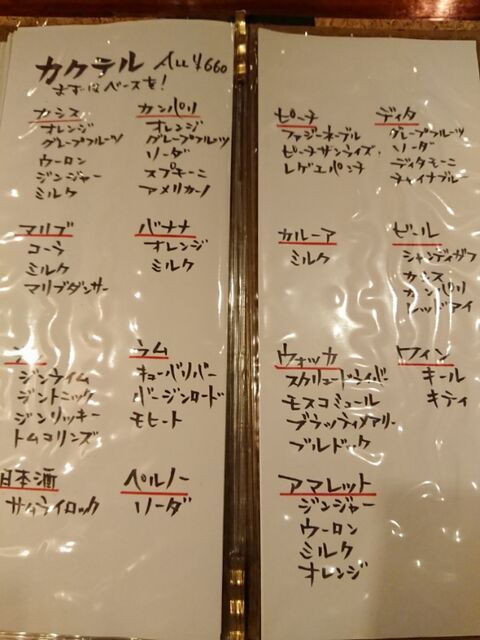 カクテル ALL ¥660
まずはベースを!
カシス
オレンジ
グレープフルーツ
ウーロン
ジンジャー
ミルク
カンパリ
オレンジ
グレープフルーツ
ソーダ
スプモーニ
アメリカーノ
マリブ
コーラ
ミルク
マリブダンサー
バナナ
オレンジ
ミルク
ジン
ジンライム
ジントニック
ジンリッキー
トムコリンズ
ラム
キューバリバー
バージンロード
モヒート
日本酒
サムライロック
ペルノー
ソーダ
ピーチ
ファジーネーブル
ピーチサンライズ
レゲエパンチ
ディタ
グレープフルーツ
ソーダ
ディタモーニ
チャイナブルー
カルーア
ミルク
ビール
シャンディガフ
カシス
カンパリ
レッドアイ
ウォッカ
スクリュードライバー
モスコミュール
ブラッディマリー
ブルドック
ワイン
キール
キティ
アマレット
ジンジャー
ウーロン
ミルク
オレンジ